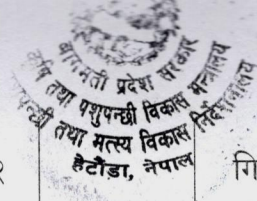 बागमती प्रदेश सरकार
कृषि तथा पशुपन्छी विकास मन्त्रालय
पन्छी तथा मत्स्य विकास निर्देशनालय
हेटौंडा, नेपाल
गि